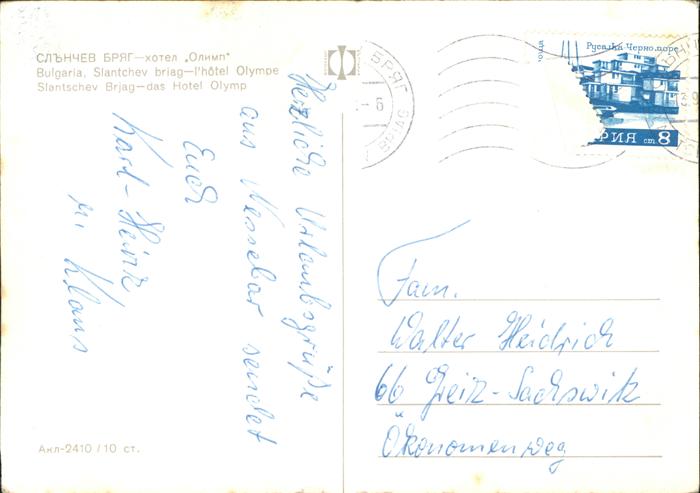 СЛЪНЧЕВ БРЯГ—хотел „Олимп“
Bulgaria, Slantchev briag—l'hôtel Olympe
Slantschev Brjag—das Hotel Olymp
Herzliche Urlaubsgrüße
aus Nessebar sendet
Euch
Karl-Heinz
u. Klaus
БРЯГ
-6
Русалка Черно море
РИЯ ст. 8
Fam.
Walter Heidrich
66 Greiz-Sachswitz
Ökonomenweg
Акл-2410/10 ст.